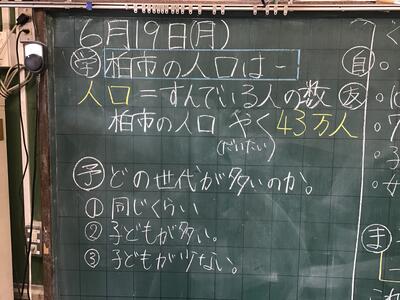 6月19日(月)
学 柏市の人口は-
人口=すんでいる人の数
柏市の人口 やく43万人
(だいたい)
予 どの世代が多いのか。
① 同じくらい
② 子どもが多い。
③ 子どもが少ない。
自
友
ま